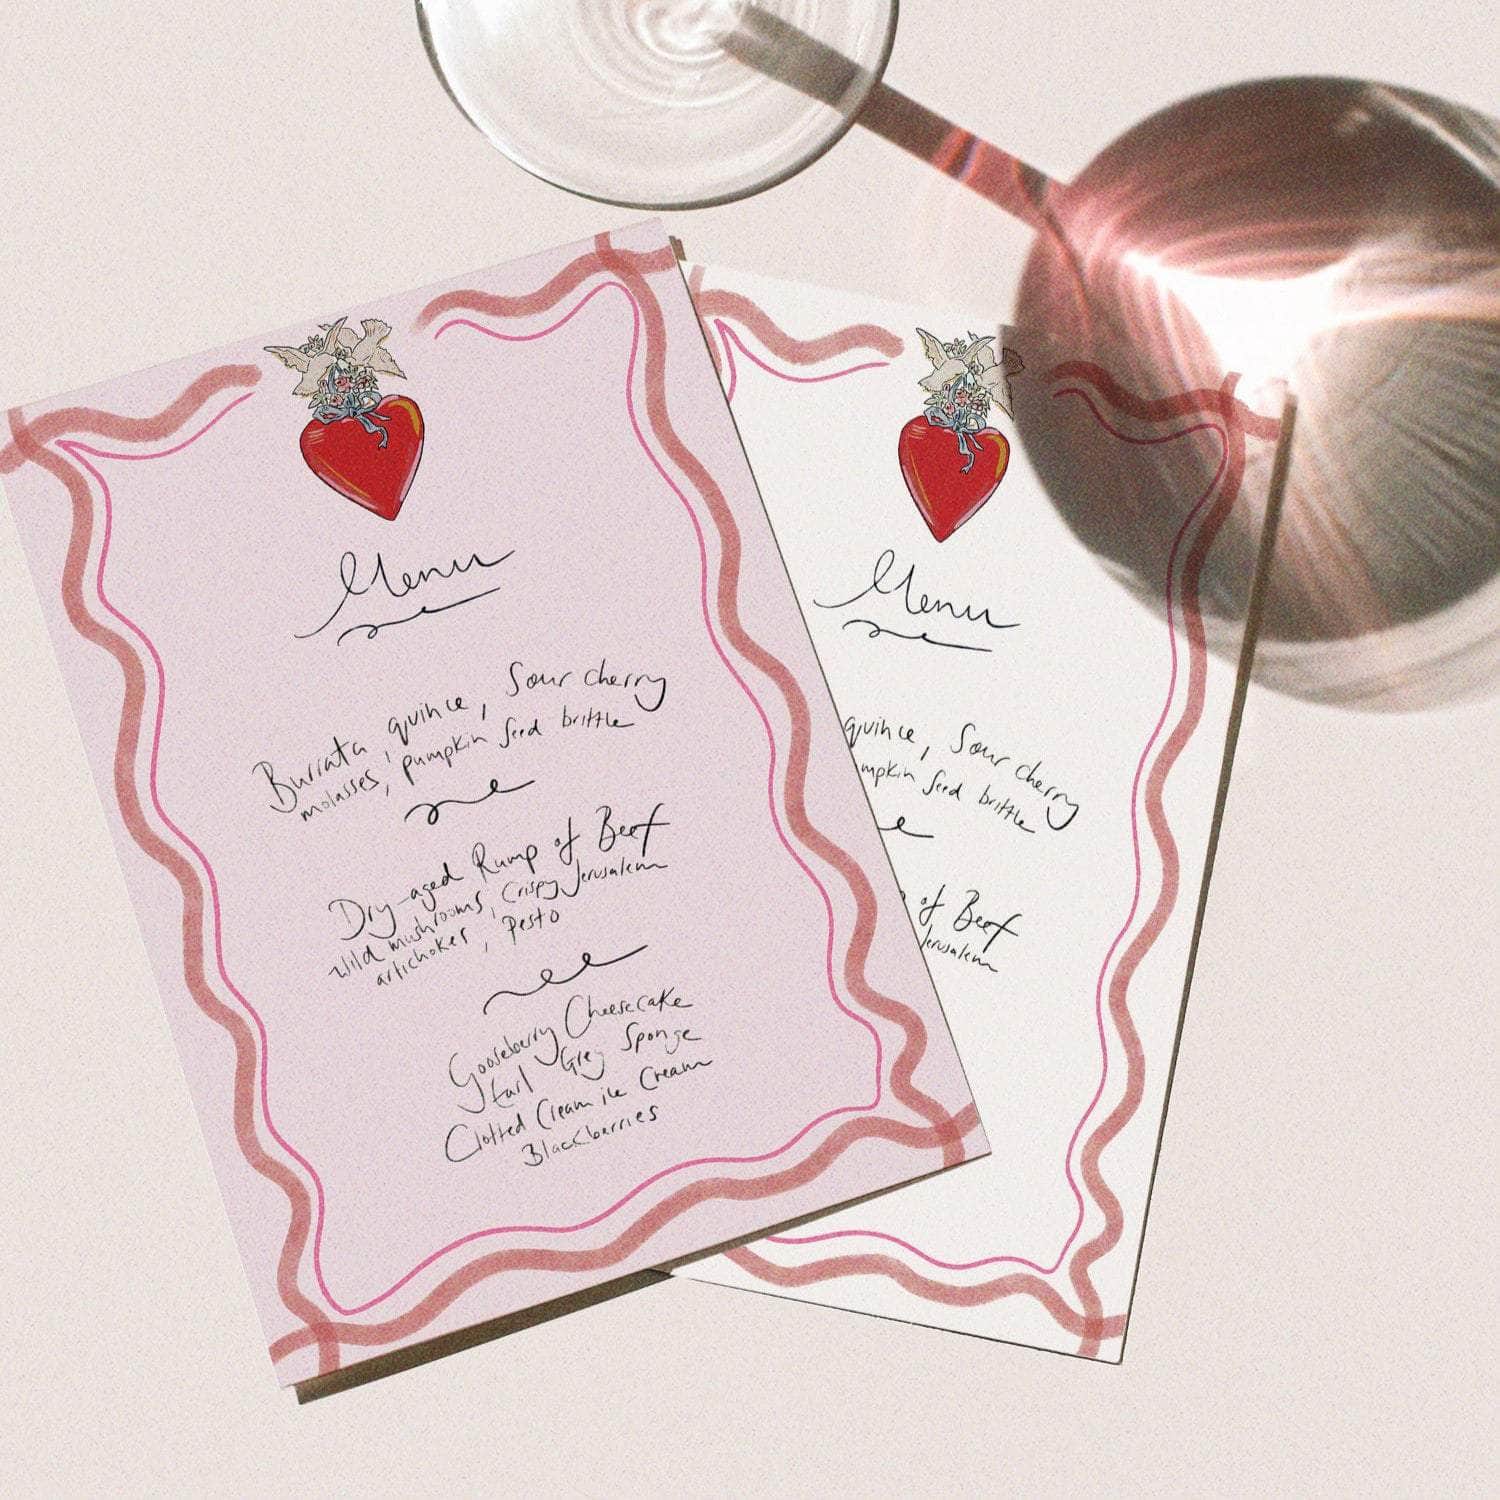 Menu
Burrata, quince, Sour cherry
molasses, pumpkin seed brittle
Dry-aged Rump of Beef
wild mushrooms, Crispy Jerusalem
artichokes, Pesto
Gooseberry Cheesecake
Earl Grey Sponge
Clotted Cream ice Cream
Blackberries
Menu
quince, Sour cherry
umpkin seed brittle
of Beef
Jerusalem